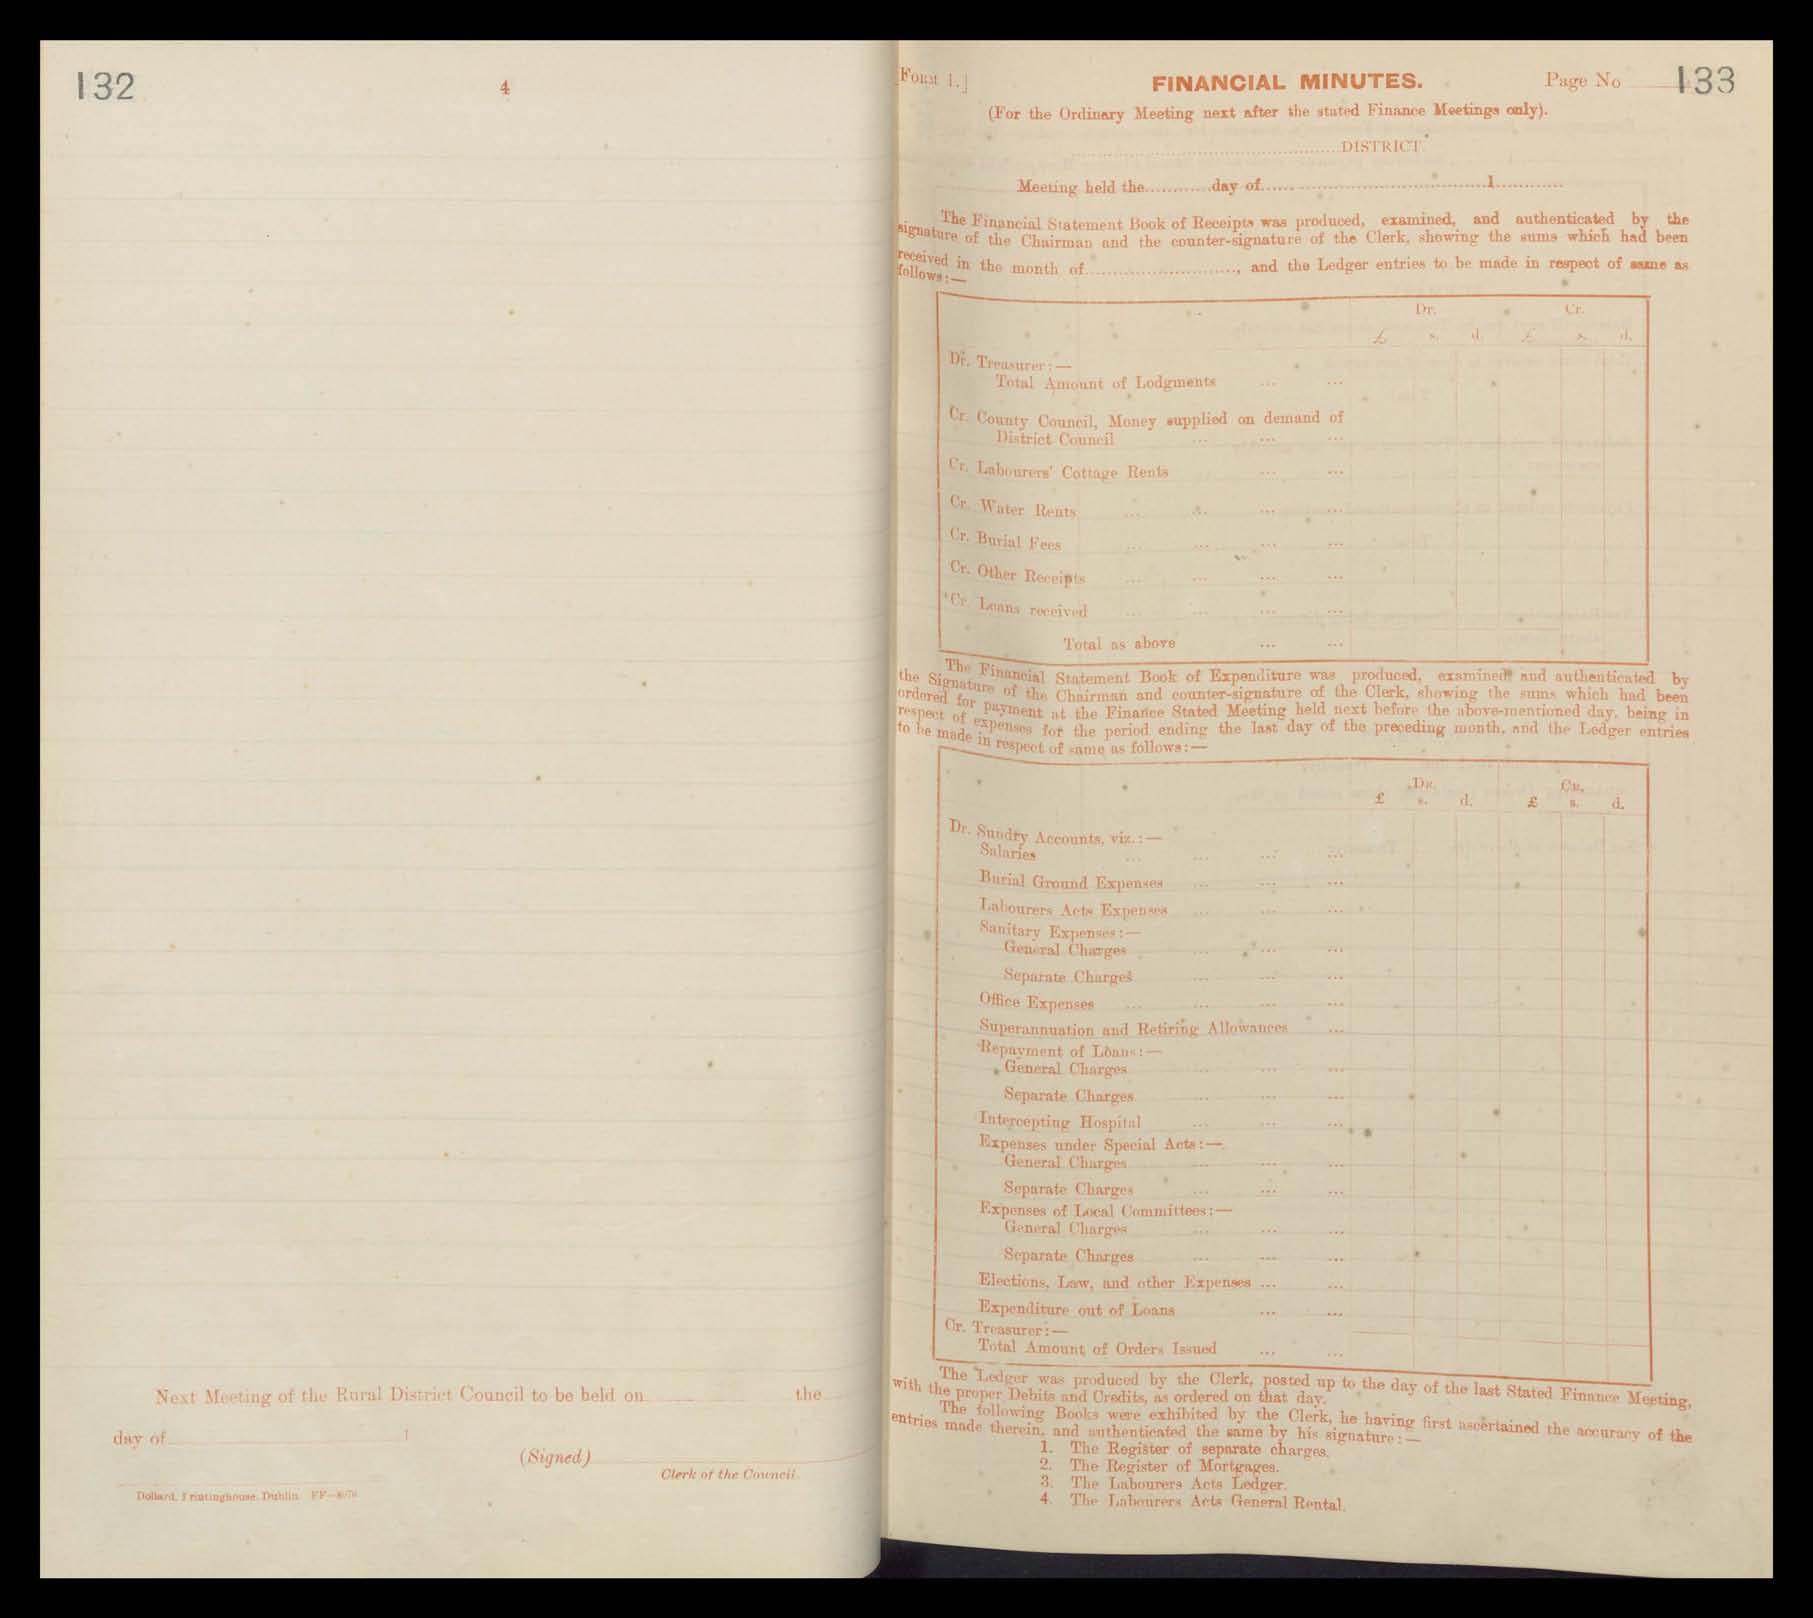 132
4
Next Meeting of the Rural District Council to be held on the
day of 1
(Signed)
Clerk of the Council.
Dollard, Printinghouse, Dublin.
[Form 1.] FINANCIAL MINUTES. Page No 133
(For the Ordinary Meeting next after the stated Finance Meetings only).
DISTRICT.
Meeting held the............day of............1............
The Financial Statement Book of Receipts was produced, examined, and authenticated by the
signature of the Chairman and the counter-signature of the Clerk, showing the sums which had been
received in the month of............, and the Ledger entries to be made in respect of same as
follows:—
Dr. Cr.
£ s. d. £ s. d.
Dr. Treasurer:—
Total Amount of Lodgments ... ...
Cr. County Council, Money supplied on demand of
District Council ... ... ...
Cr. Labourers' Cottage Rents ... ...
Cr. Water Rents ... ... ... ...
Cr. Burial Fees ... ... ... ...
Cr. Other Receipts ... ... ... ...
*Cr. Loans received ... ... ... ...
Total as above ... ...
The Financial Statement Book of Expenditure was produced, examined and authenticated by
the Signature of the Chairman and counter-signature of the Clerk, showing the sums which had been
ordered for payment at the Finance Stated Meeting held next before the above-mentioned day, being in
respect of expenses for the period ending the last day of the preceding month, and the Ledger entries
to be made in respect of same as follows:—
Dr. Cr.
£ s. d. £ s. d.
Dr. Sundry Accounts, viz.:—
Salaries ... ... ... ...
Burial Ground Expenses ... ... ...
Labourers Acts Expenses ... ... ...
Sanitary Expenses:—
General Charges ... ... ...
Separate Charges ... ... ...
Office Expenses ... ... ... ...
Superannuation and Retiring Allowances ...
Repayment of Loans:—
General Charges ... ... ...
Separate Charges ... ... ...
Intercepting Hospital ... ... ...
Expenses under Special Acts:—
General Charges ... ... ...
Separate Charges ... ... ...
Expenses of Local Committees:—
General Charges ... ... ...
Separate Charges ... ... ...
Elections, Law, and other Expenses ... ...
Expenditure out of Loans ... ...
Cr. Treasurer:—
Total Amount of Orders Issued ... ...
The Ledger was produced by the Clerk, posted up to the day of the last Stated Finance Meeting,
with the proper Debits and Credits, as ordered on that day.
The following Books were exhibited by the Clerk, he having first ascertained the accuracy of the
entries made therein, and authenticated the same by his signature:—
1. The Register of separate charges.
2. The Register of Mortgages.
3. The Labourers Acts Ledger.
4. The Labourers Acts General Rental.